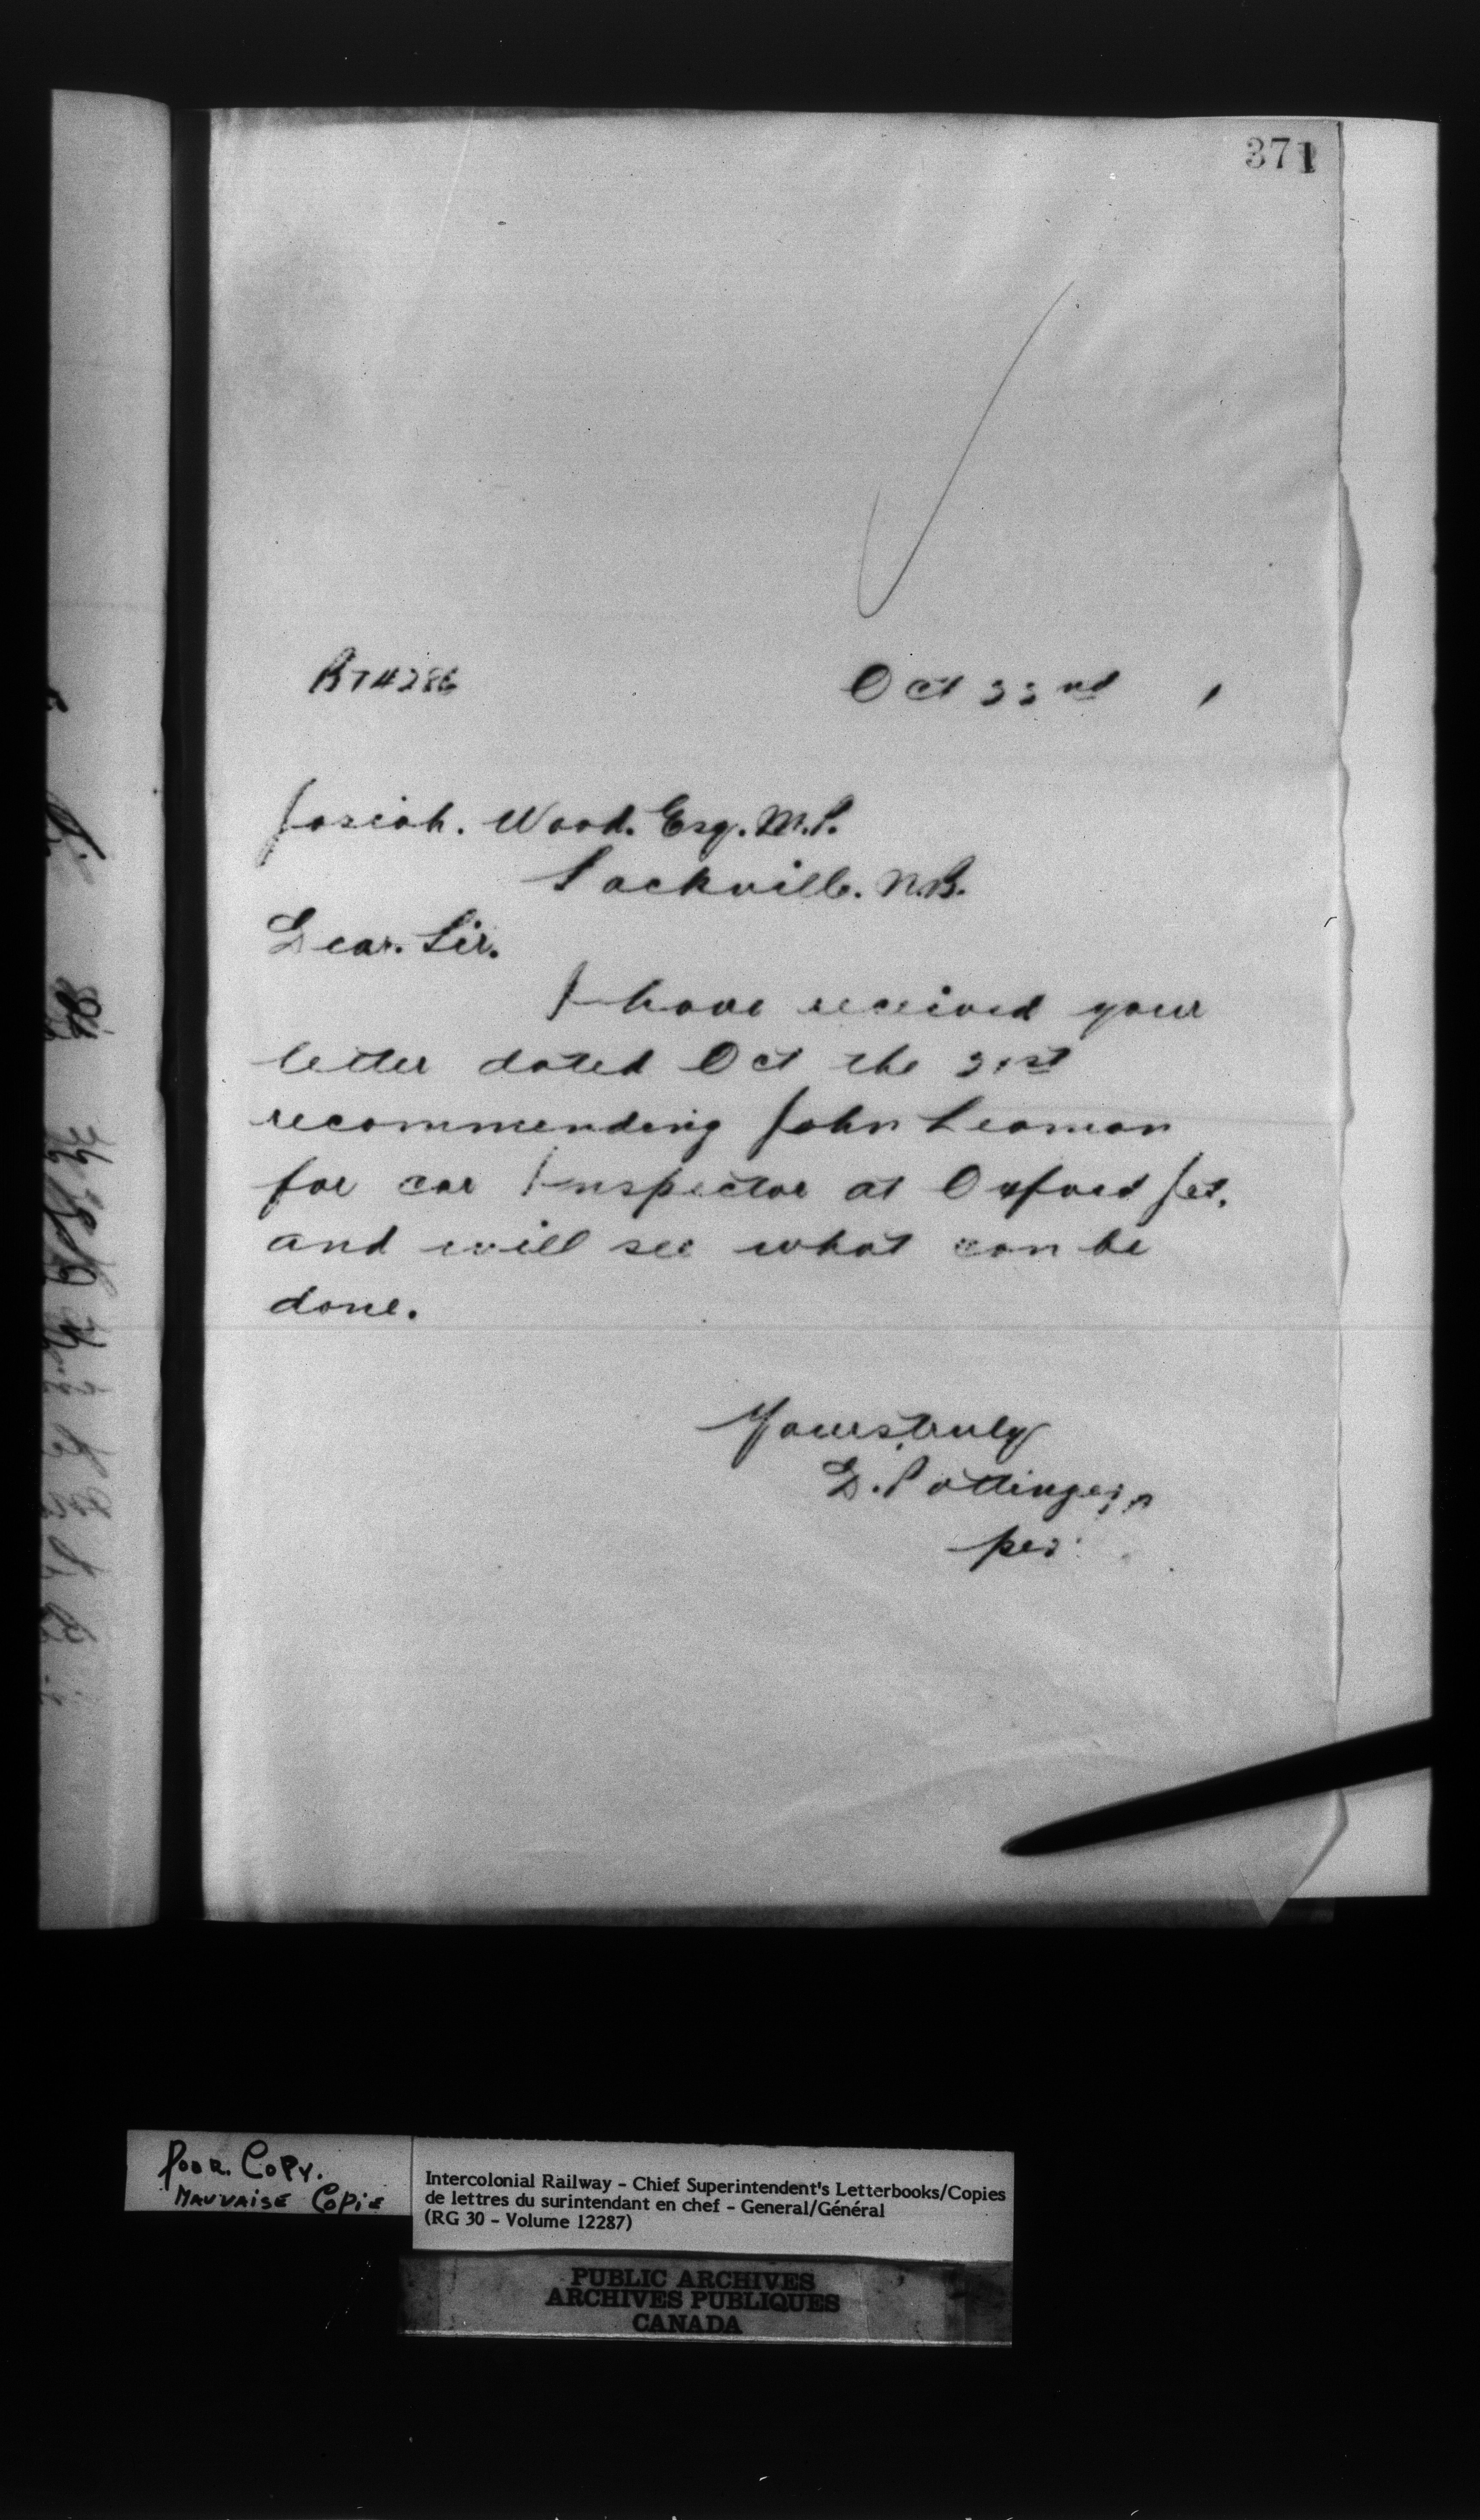 371
R74286
Oct 22nd
Josiah. Wood. Esq. M.P.
Sackville. N.B.
Dear. Sir.
I have received your
letter dated Oct the 21st
recommending John Leaman
for car Inspector at Oxford Jct.
and will see what can be
done.
Yours truly
D. Pottinger
per
Poor. Copy.
Mauvaise Copie
Intercolonial Railway - Chief Superintendent's Letterbooks/Copies
de lettres du surintendant en chef - General/Général
(RG 30 - Volume 12287)
PUBLIC ARCHIVES
ARCHIVES PUBLIQUES
CANADA